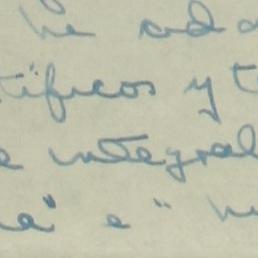 he ada
tíficos y t
e integral
na" e "h